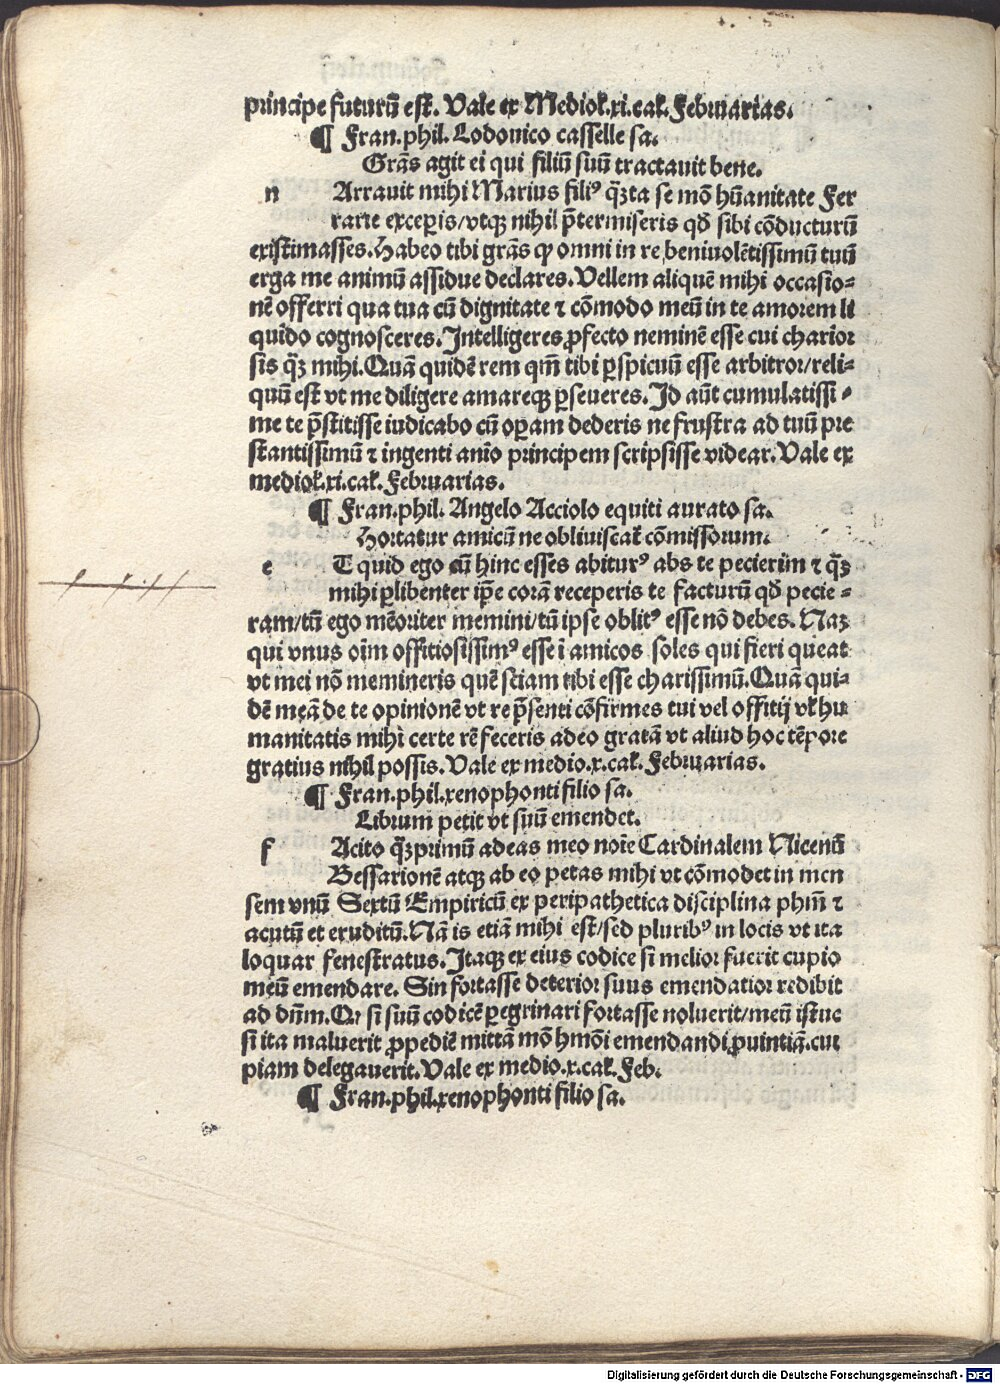 principe futurū est. Vale ex Mediol.xi.cal. Februarias.
¶ Fran.phil. Lodouico casselle sa.
Grās agit ei qui filiū suū tractauit bene.
n Arrauit mihi Marius filiꝰ q̄ꝫta se mō hūanitate Fer
rarie exceperis/vtqꝫ nihil p̄termiseris qď sibi cōducturū
existimasses. Habeo tibi grās ꝙ omni in re beniuolētissimū tuū
erga me animū assidue declares. Vellem aliquē mihi occasio⸗
nē offerri qua tua cū dignitate ⁊ cōmodo meū in te amorem li
quido cognosceres. Intelligeres ꝓfecto neminē esse cui charior
sis q̄ꝫ mihi. Quā quidē rem qm̄ tibi ꝑspicuū esse arbitror/reli⸗
quū est vt me diligere amareqꝫ ꝑseueres. Id aūt cumulatissi⸗
me te p̄stitisse iudicabo cū oꝑam dederis ne frustra ad tuū pre
stantissimū ⁊ ingenti anīo principem scripsisse videar. Vale ex
mediol.xi.cal. Februarias.
¶ Fran.phil. Angelo Acciolo equiti aurato sa.
Hortatur amicū ne obliuiscat̄ cōmissorum.
e T quid ego cū hinc esses abiturꝰ abs te pecierim ⁊ q̄ꝫ
mihi ꝑlibenter ip̄e corā receperis te facturū qď pecie⸗
ram/tū ego mēoriter memini/tū ipse oblitꝰ esse nō debes. Naꝫ
qui vnus oīm offitiosissimꝰ esse ī amicos soles qui fieri queat
vt mei nō memineris quē sciam tibi esse charissimū. Quā qui⸗
dē meā de te opinionē vt re p̄senti cōfirmes tui vel offitij vľ hu
manitatis mihi certe rē feceris adeo gratā vt aliud hoc tēpore
gratius nihil possis. Vale ex medio.x.cal. Februarias.
¶ Fran.phil.xenophonti filio sa.
Librum petit vt suū emendet.
f Acito q̄ꝫprimū adeas meo noīe Cardinalem Nicenū
Bessarionē atqꝫ ab eo petas mihi vt cōmodet in men
sem vnū Sextū Empiricū ex peripathetica disciplina phm̄ ⁊
acutū et eruditū. Nā is etiā mihi est/sed pluribꝰ in locis vt ita
loquar fenestratus. Itaqꝫ ex eius codice si melior fuerit cupio
meū emendare. Sin fortasse deterior suus emendatior redibit
ad dn̄m. Qꝛ si suū codicē ꝑegrinari fortasse noluerit/meū istuc
si ita maluerit ꝓpediē mittā mō hmōi emendandi ꝓuintiā.cui
piam delegauerit. Vale ex medio.x.cal. Feb.
¶ Fran.phil.xenophonti filio sa.
Digitalisierung gefördert durch die Deutsche Forschungsgemeinschaft - DFG